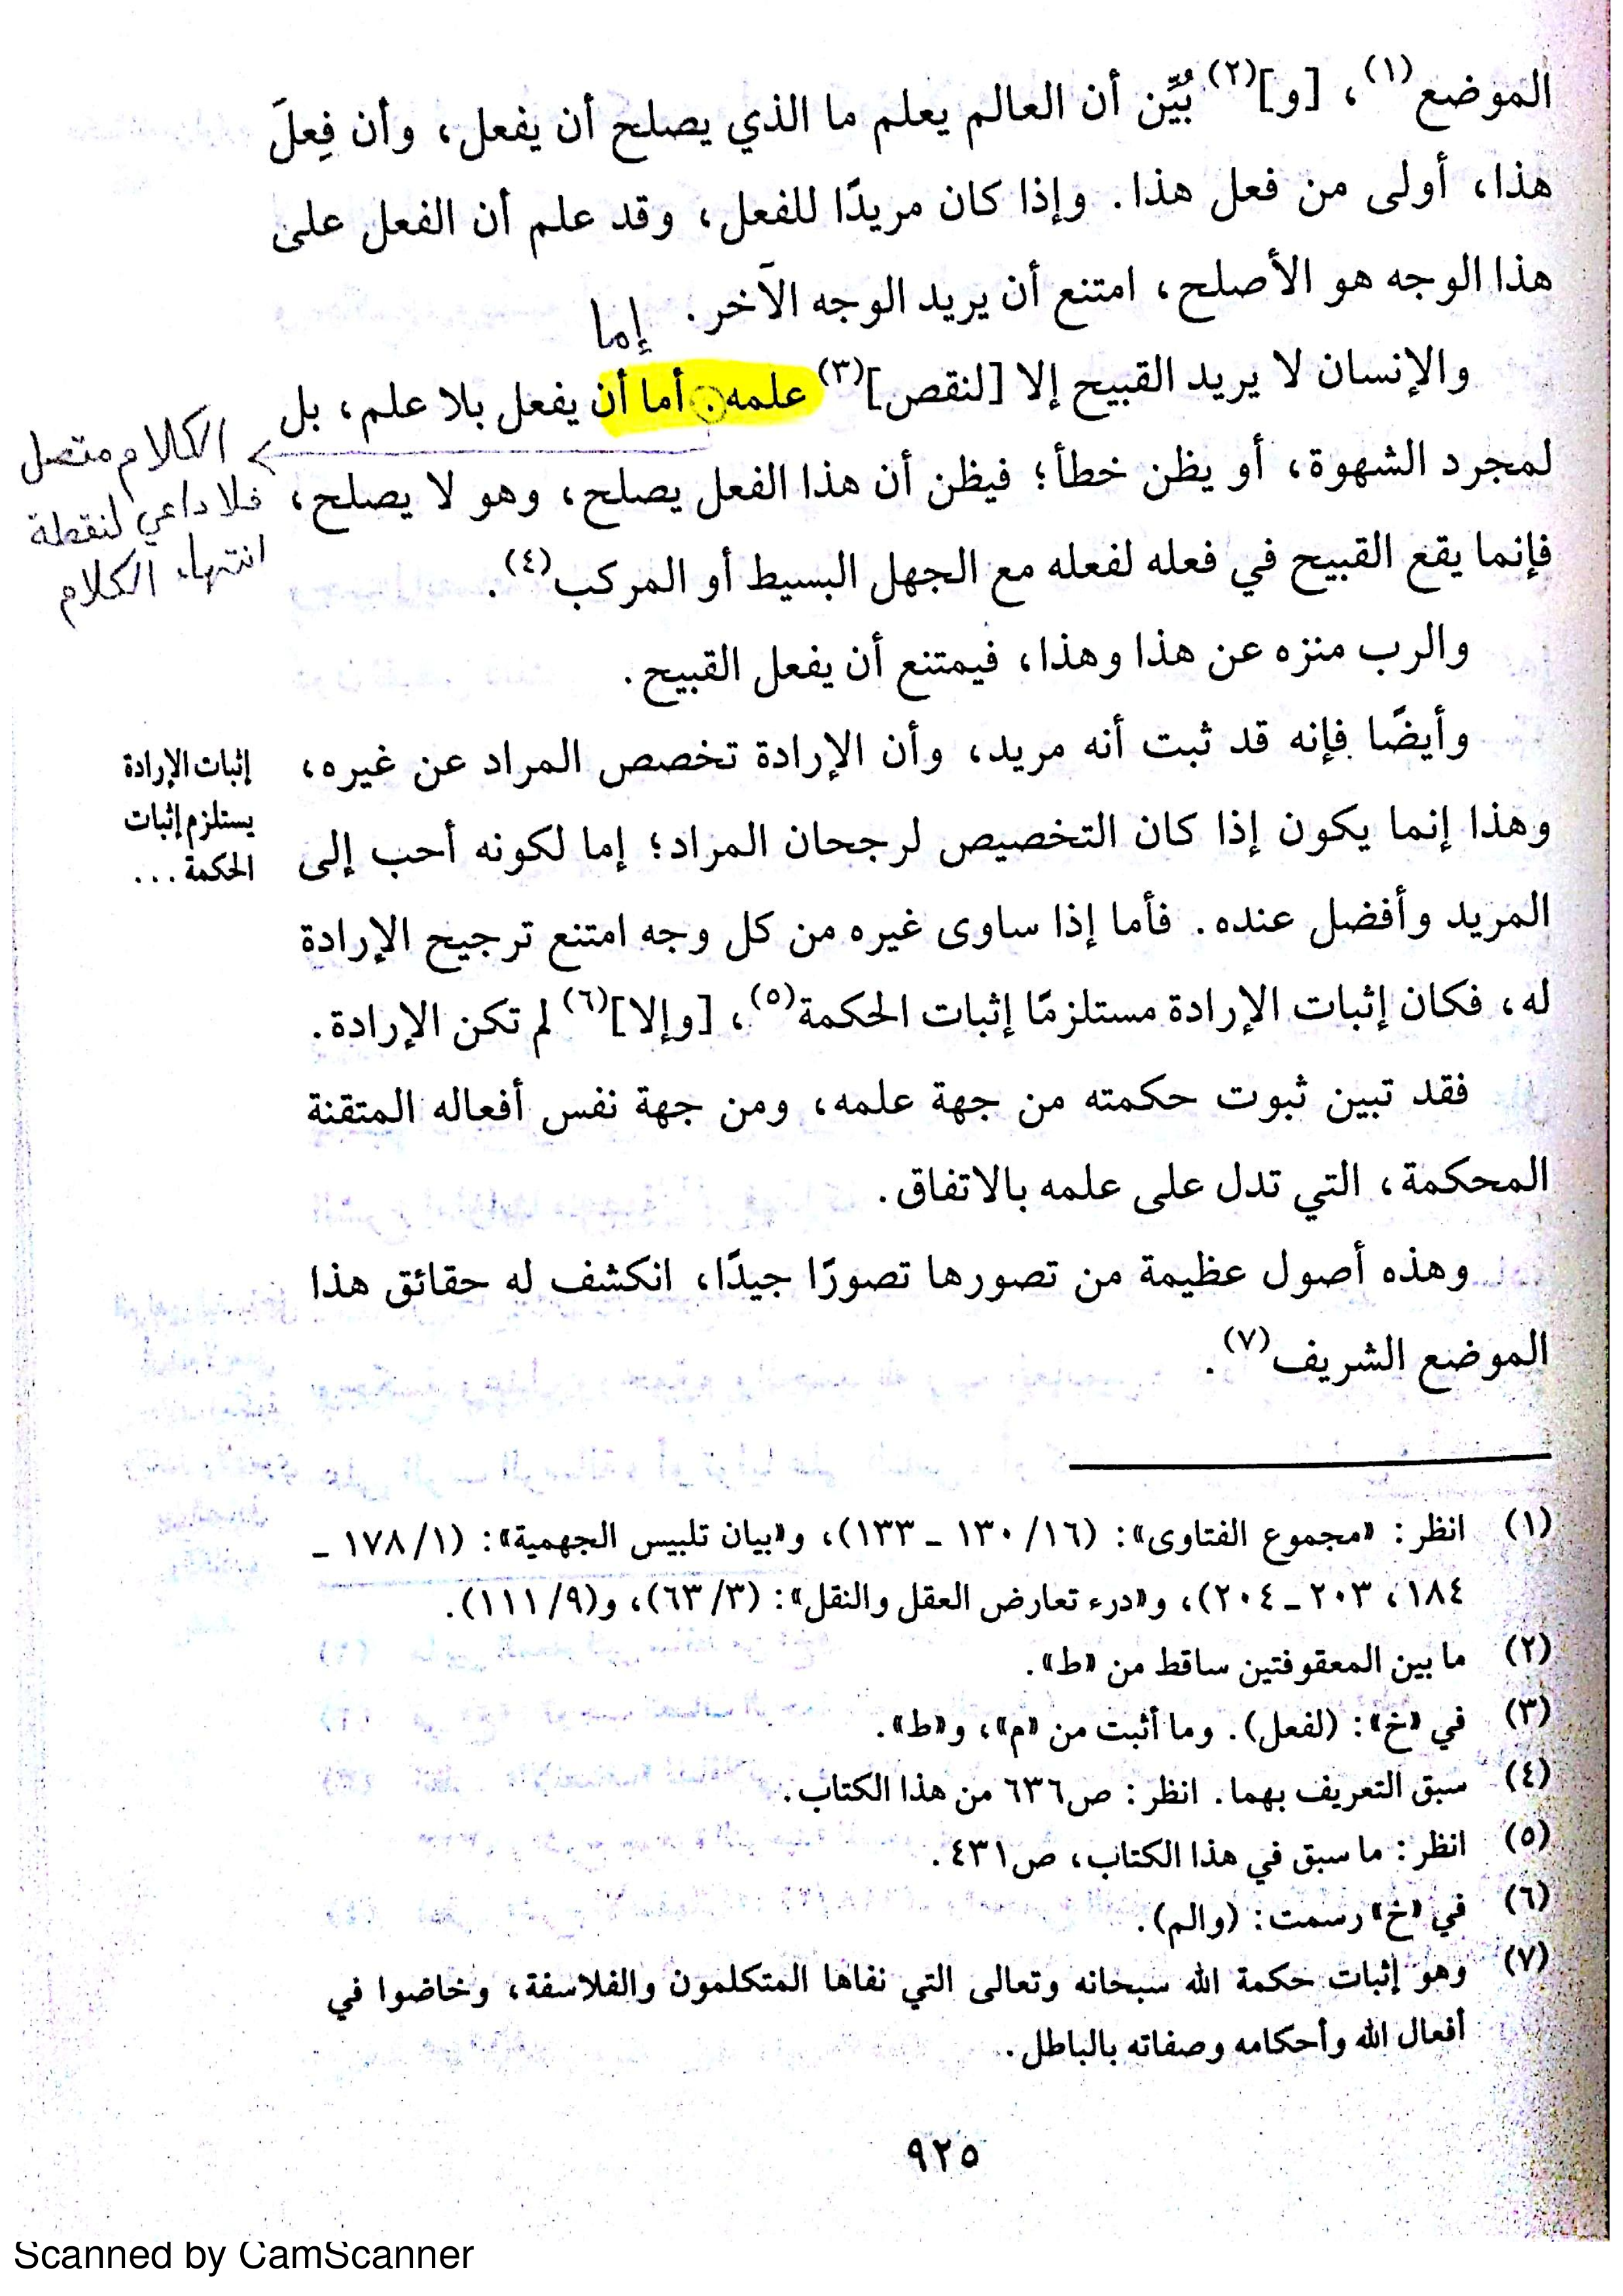 الموضع(١)، [و](٢) بُيِّن أن العالم يعلم ما الذي يصلح أن يفعل، وأن فِعلَ
هذا، أولى من فعل هذا. وإذا كان مريدًا للفعل، وقد علم أن الفعل على
هذا الوجه هو الأصلح، امتنع أن يريد الوجه الآخر.
إما
والإنسان لا يريد القبيح إلا [لنقص](٣) علمه. أما أن يفعل بلا علم، بل
لمجرد الشهوة، أو يظن خطأ؛ فيظن أن هذا الفعل يصلح، وهو لا يصلح،
فإنما يقع القبيح في فعله لفعله مع الجهل البسيط أو المركب(٤).
الكلام متصل
فلا داعي لنقطة
انتهاء الكلام
والرب منزه عن هذا وهذا، فيمتنع أن يفعل القبيح.
وأيضًا فإنه قد ثبت أنه مريد، وأن الإرادة تخصص المراد عن غيره،
وهذا إنما يكون إذا كان التخصيص لرجحان المراد؛ إما لكونه أحب إلى
المريد وأفضل عنده. فأما إذا ساوى غيره من كل وجه امتنع ترجيح الإرادة
له، فكان إثبات الإرادة مستلزمًا إثبات الحكمة(٥)، [وإلا](٦) لم تكن الإرادة.
إثبات الإرادة
يستلزم إثبات
الحكمة...
فقد تبين ثبوت حكمته من جهة علمه، ومن جهة نفس أفعاله المتقنة
المحكمة، التي تدل على علمه بالاتفاق.
وهذه أصول عظيمة من تصورها تصورًا جيدًا، انكشف له حقائق هذا
الموضع الشريف(٧).
(١) انظر: «مجموع الفتاوى»: (١٦/ ١٣٠ ـ ١٣٣)، و«بيان تلبيس الجهمية»: (١/ ١٧٨ ـ
١٨٤، ٢٠٣ ـ ٢٠٤)، و«درء تعارض العقل والنقل»: (٣/ ٦٣)، و(٩/ ١١١).
(٢) ما بين المعقوفتين ساقط من «ط».
(٣) في «خ»: (لفعل). وما أثبت من «م»، و«ط».
(٤) سبق التعريف بهما. انظر: ص٦٣٦ من هذا الكتاب.
(٥) انظر: ما سبق في هذا الكتاب، ص٤٣١.
(٦) في «خ» رسمت: (والم).
(٧) وهو إثبات حكمة الله سبحانه وتعالى التي نفاها المتكلمون والفلاسفة، وخاضوا في
أفعال الله وأحكامه وصفاته بالباطل.
٩٢٥
Scanned by CamScanner